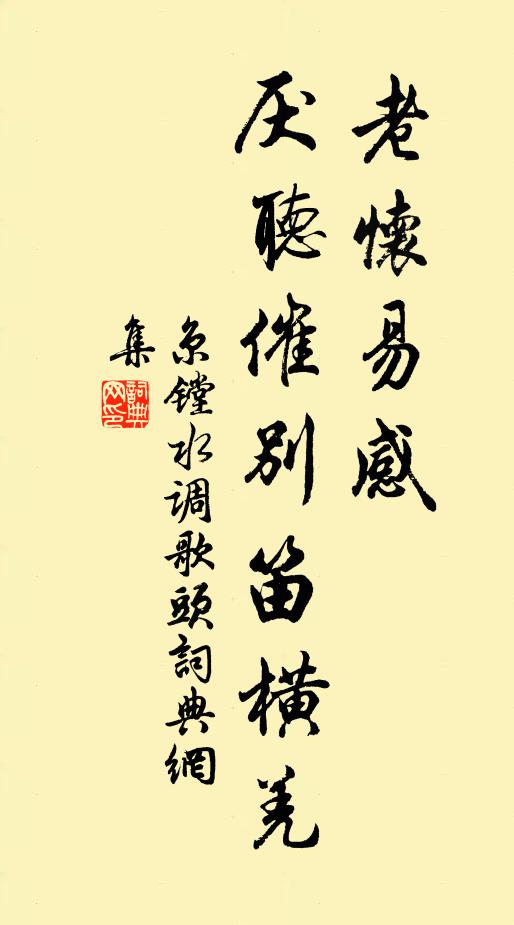 老懷易感
厌聽催別笛橫羌
京鏜水调歌頭詞典網
集
詞典